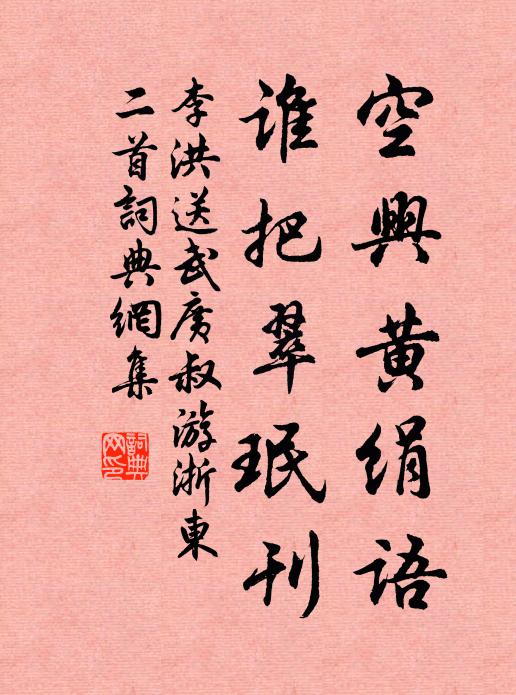 空興黄絹語
誰把翠珉刊
李洪送武廣叔游浙東
二首詞典網集
詞典網印